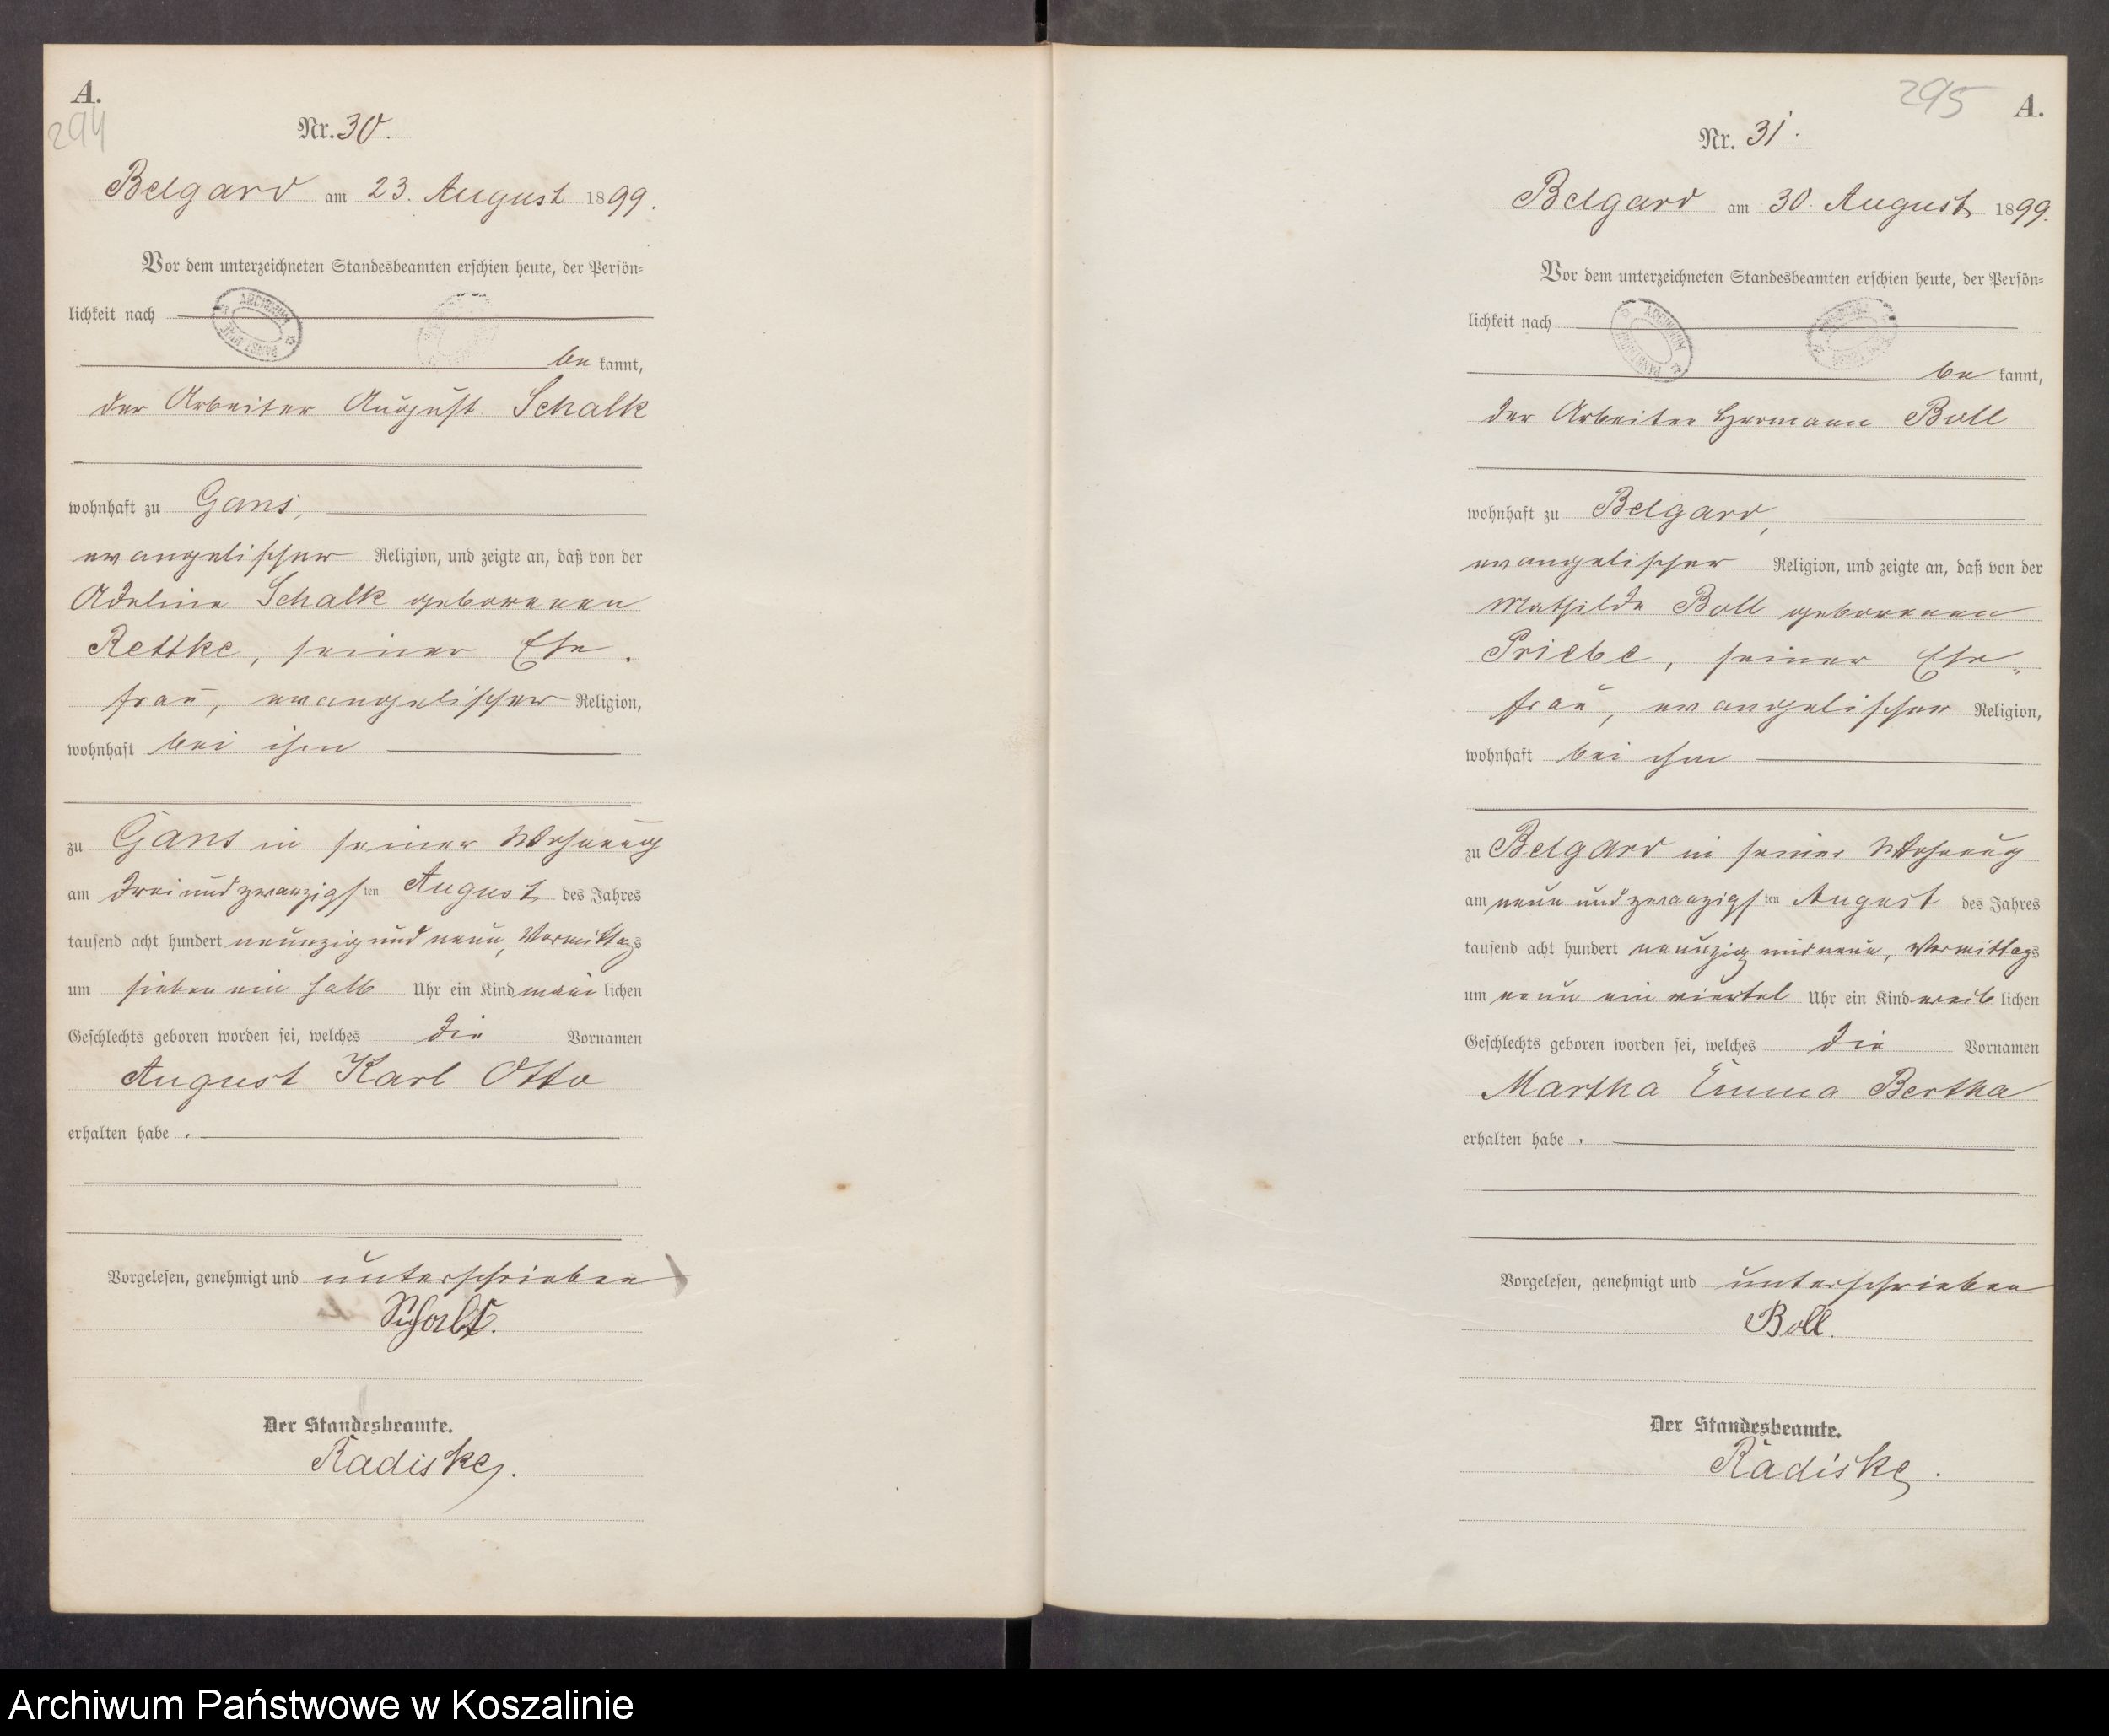 A.
294
Nr. 30.
Belgard am 23. August 1899.
Vor dem unterzeichneten Standesbeamten erschien heute, der Persön=
lichkeit nach
ARCHIWUM
be kannt,
der Arbeiter August Schalk
wohnhaft zu Gans,
evangelischer Religion, und zeigte an, daß von der
Adeline Schalk geborenen
Rettke, seiner Ehe-
frau, evangelischer Religion,
wohnhaft bei ihm
zu Gans in seiner Wohnung
am dreiundzwanzigsten August des Jahres
tausend acht hundert neunzig und neun, Vormittags
um sieben ein halb Uhr ein Kind männlichen
Geschlechts geboren worden sei, welches die Vornamen
August Karl Otto
erhalten habe.
Vorgelesen, genehmigt und unterschrieben
Schalk.
Der Standesbeamte.
Radiske.
295
A.
Nr. 31.
Belgard am 30. August 1899.
Vor dem unterzeichneten Standesbeamten erschien heute, der Persön=
lichkeit nach
ARCHIWUM
be kannt,
der Arbeiter Hermann Boll
wohnhaft zu Belgard,
evangelischer Religion, und zeigte an, daß von der
Mathilde Boll geborenen
Priebe, seiner Ehe-
frau, evangelischer Religion,
wohnhaft bei ihm
zu Belgard in seiner Wohnung
am neun und zwanzigsten August des Jahres
tausend acht hundert neunzig und neun, Vormittags
um neun ein viertel Uhr ein Kind weiblichen
Geschlechts geboren worden sei, welches die Vornamen
Martha Emma Bertha
erhalten habe.
Vorgelesen, genehmigt und unterschrieben
Boll.
Der Standesbeamte.
Radiske.
Archiwum Państwowe w Koszalinie